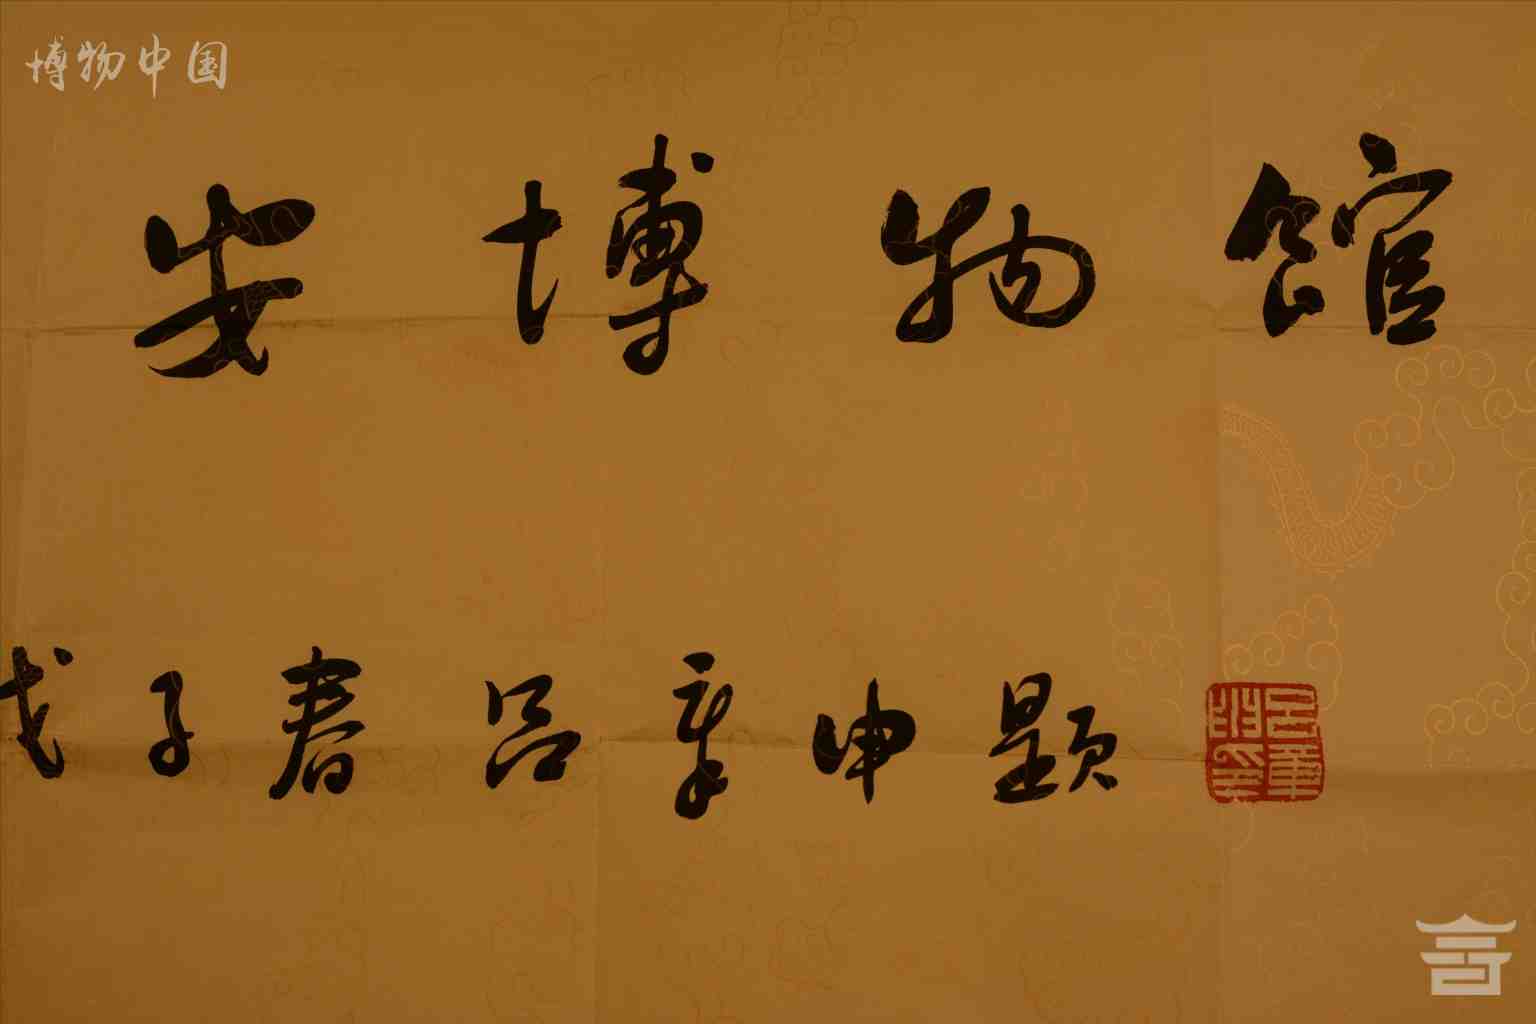 博物中国
安博物馆
戊子春吕章申题